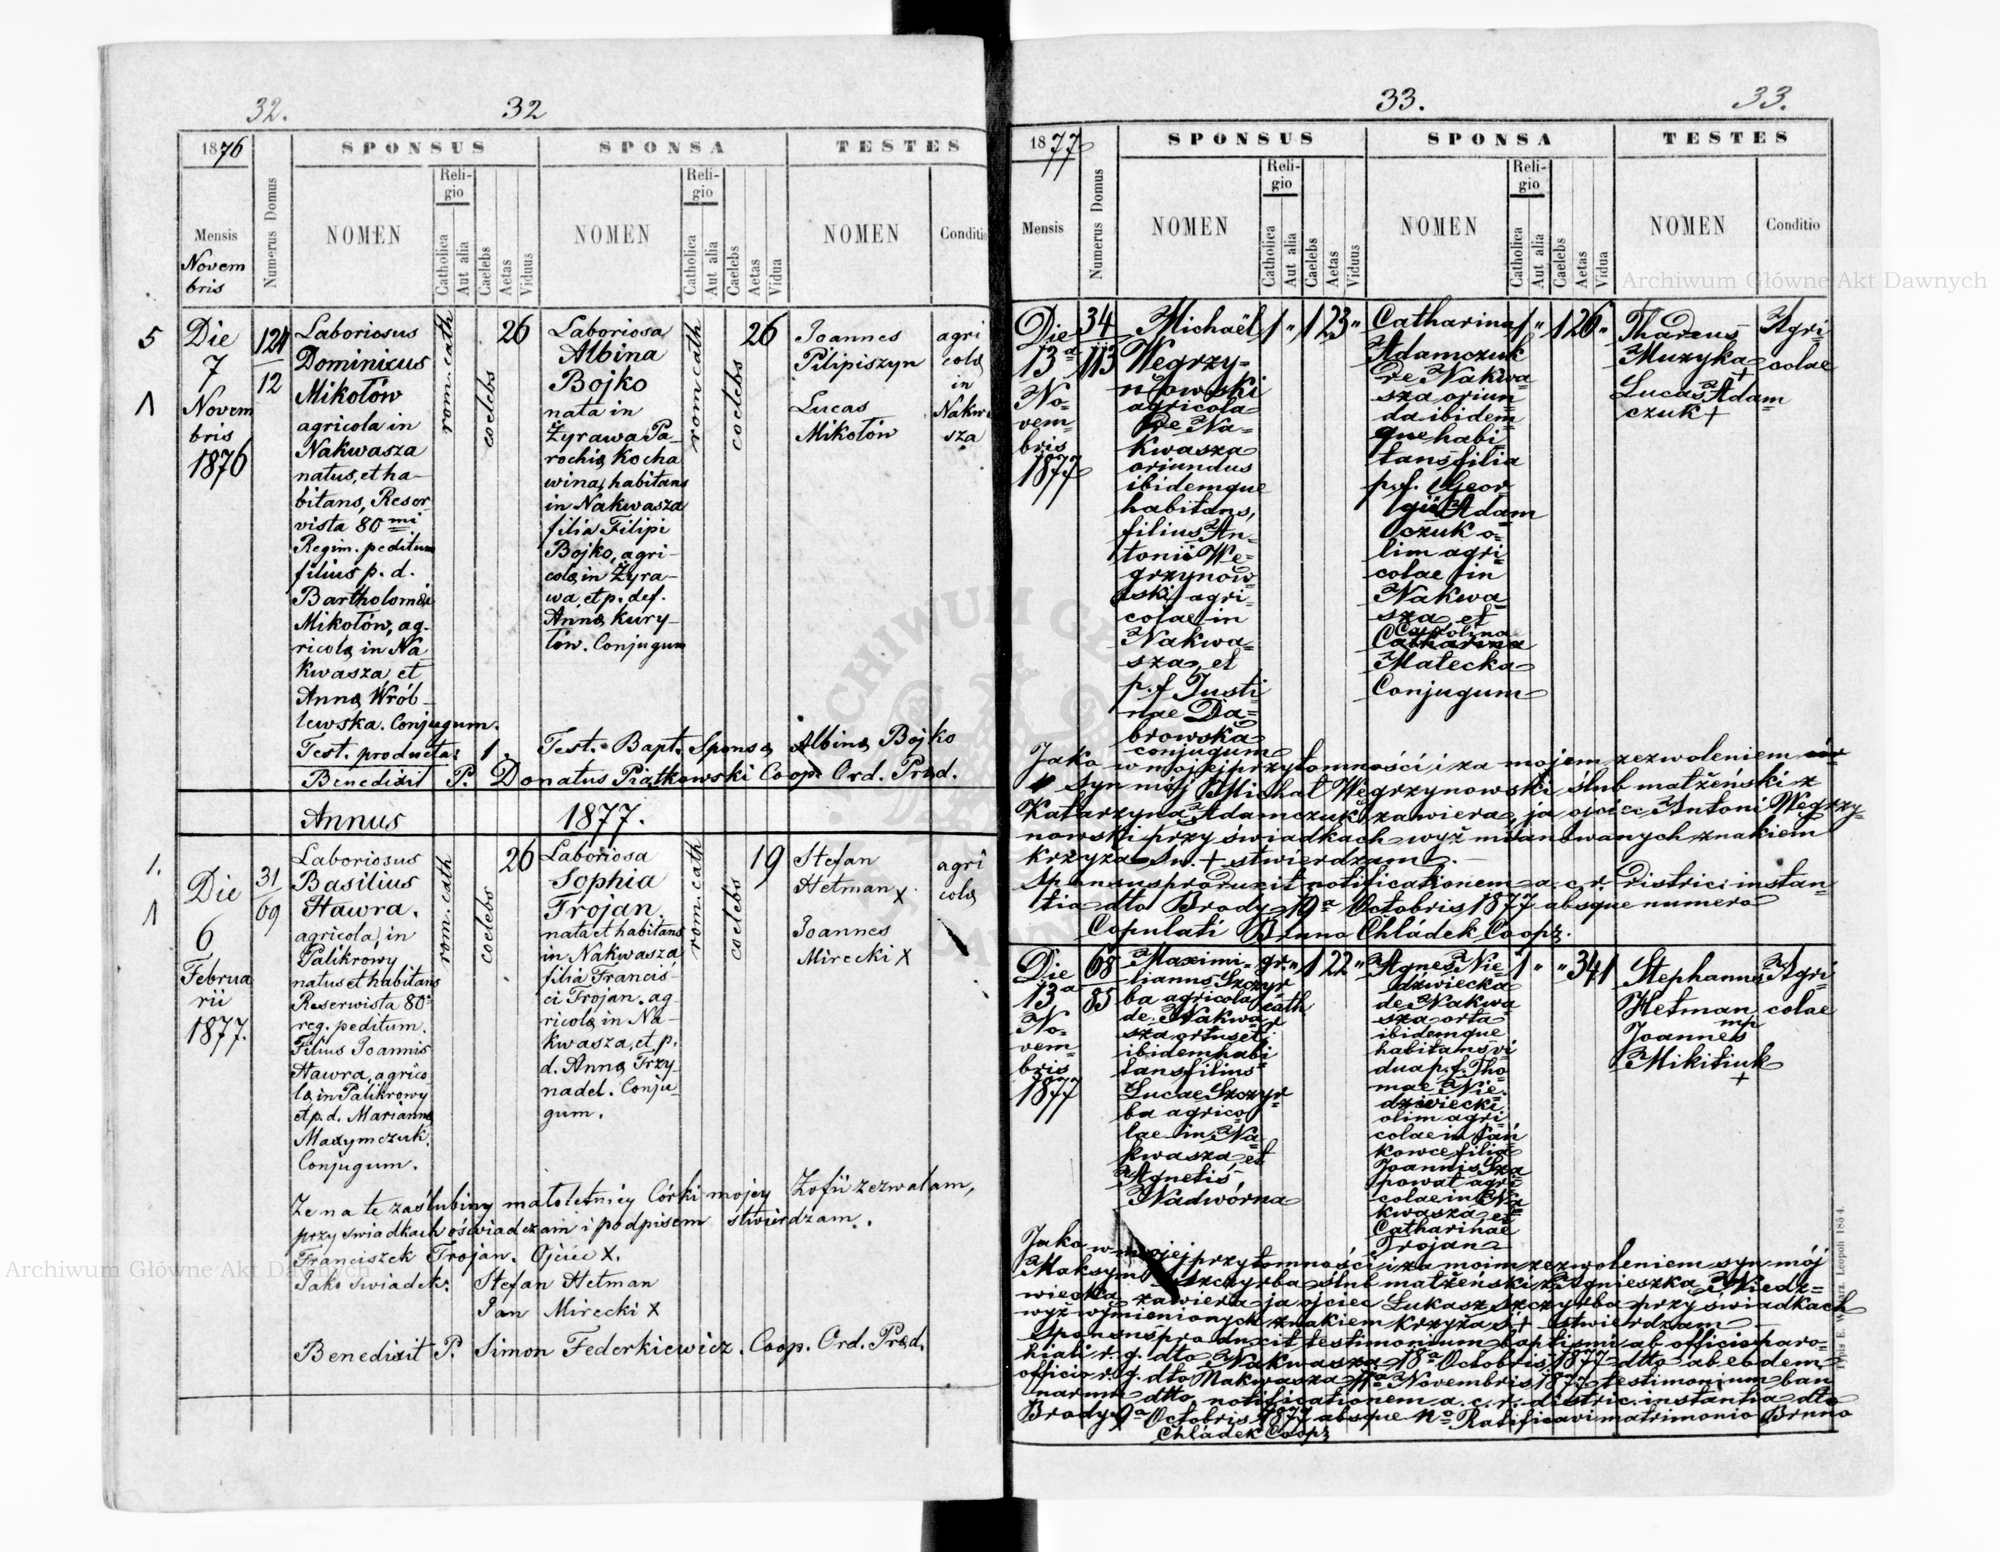 32.
32
1876
SPONSUS
SPONSA
TESTES
Mensis
Novem
bris
Numerus Domus
NOMEN
Religio
Catholica
Aut alia
Caelebs
Aetas
Viduus
NOMEN
Religio
Catholica
Aut alia
Caelebs
Aetas
Vidua
NOMEN
Conditio
5
1
Die
7
Novem
bris
1876
124
12
Laboriosus
Dominicus
Mikołów
agricola in
Nakwasza
natus, et ha-
bitans, Reser
vista 80 mi
Regim. peditum
filius p. d.
Bartholomæi
Mikołów, ag-
ricolæ in Na
kwasza, et
Annæ Wrób-
lewska. Conjugum.
rom. cath
coelebs
26
Laboriosa
Albina
Bojko
nata in
Żyrawa Pa-
rochiæ Kocha
wina, habitans
in Nakwasza
filia Filipi
Bojko, agri-
colæ in Żyra-
wa, et p. def.
Annæ Kury-
łów. Conjugum
rom cath
coelebs
26
Joannes
Pilipiszyn
Lucas
Mikołów
agri
colæ
in
Nakwa
sza
Test. producta: 1. Test. Bapt. Sponsæ Albinæ Bojko
Benedixit P. Donatus Piątkowski Coop. Ord. Præd.
Annus 1877.
1.
1
Die
6
Februa
rii
1877.
31
69
Laboriosus
Basilius
Hawra.
agricola, in
Palikrowy
natus et habitans
Reserwista 80
reg. peditum.
Filius Joannis
Hawra, agrico-
læ in Palikrowy
et p. d. Mariannæ
Maxymczuk.
Conjugum.
rom. cath
coelebs
26
Laboriosa
Sophia
Trojan,
nata et habitans
in Nakwasza
filia Francis-
ci Trojan. ag-
ricolæ in Na-
kwasza, et p.
d. Annæ Przy-
nadel. Conju-
gum.
rom. cath
coelebs
19
Stefan
Hetman x
Joannes
Mirecki x
agri
colæ
Że na te zaślubiny małoletniéy Córki mojey Zofii zezwalam,
przy swiadkach oświadczam i podpisem stwierdzam.
Franciszek Trojan. Ojciec X.
Jako swiadek: Stefan Hetman
Jan Mirecki X
Benedixit P. Simon Federkiewicz. Coop. Ord. Præd.
33.
33.
1877
SPONSUS
SPONSA
TESTES
Mensis
Numerus Domus
NOMEN
Religio
Catholica
Aut alia
Caelebs
Aetas
Viduus
NOMEN
Religio
Catholica
Aut alia
Caelebs
Aetas
Vidua
NOMEN
Conditio
Die
13 a
No-
vem-
bris
1877
34
113
Michaël
Węgrzy-
nowski
agricola
de Na-
kwasza
oriundus
ibidemque
habitans,
filius An-
tonii We-
grzynow-
ski agri-
colae in
Nakwa-
sza et
p. f Justi
nae Dą-
browska
conjugum
1 " 1 23 "
Catharina
Adamczuk
de Nakwa-
sza oriun
da ibidem
que habi
tans filia
p. f. Geor-
gii Adam
czuk o-
lim agri-
colae in
Nakwa-
sza et
Carolina
Catharina
Małecka
Conjugum
1 " 1 26 "
Thadeus
Muzyka +
Lucas Adam
czuk +
Agri-
colae
Jako w mojej przytomności i za mojem zezwoleniem
syn mój Michał Węgrzynowski ślub małżeński z
Katarzyną Adamczuk zawiera, ja ojciec Antoni Węgrzy-
nowski przy świadkach wyż mianowanych znakiem
krzyża św. + stwierdzam.
Sponsus produxit notificationem a c. r. District: instan-
tia dto Brody 19 a Octobris 1877 absque numero
Copulati Bruno Chládek Coop.
Die
13 a
No-
vem-
bris
1877
68
85
Maximi-
lianus Szczyr
ba agricola
de Nakwa
sza ortus et
ibidem habi
tans filius
Lucae Szczyr-
ba agrico
lae in Na-
kwasza et
Agnetis
Nadwórna
gr.
cath
r
" 1 22 "
Agnes Nie-
dźwiecka
de Nakwa
sza orta
ibidemque
habitans vi
dua p. f. Tho
mae Nie-
dzwiecki
olim agri-
colae in Pań
kowce filia
Joannis Sza
powal agri
colae in Na
kwasza et
Catharinae
Trojan
1 " " 34 1
Stephanus
Hetman
mp
Joannes
Mikitiuk
+
Agri
colae
Jako w mojej przytomności i za moim zezwoleniem syn mój
Maksym Szczyrba ślub małżeński z Agnieszką Niedz-
wiecką zawiera ja ojciec Łukasz Szczyrba przy świadkach
wyż wymienionych znakiem krzyża s + stwierdzam
Sponsus produxit testimonium baptismi ab officio paro-
chiali r. g. dto Nakwasza 18 a Octobris 1877 dtto ab eodem
officio r. g. dto Nakwasza 11 a Novembris 1877 testimonium ban
narum dtto notificationem a. c. r. distric: instantia dto
Brody 9 a Octobris 1877 absque No Ratificavi matrimonio Bruno
Chládek Coop.
Typis E. Winiarz. Leopoli 1854.
Archiwum Główne Akt Dawnych
Archiwum Główne Akt Dawnych